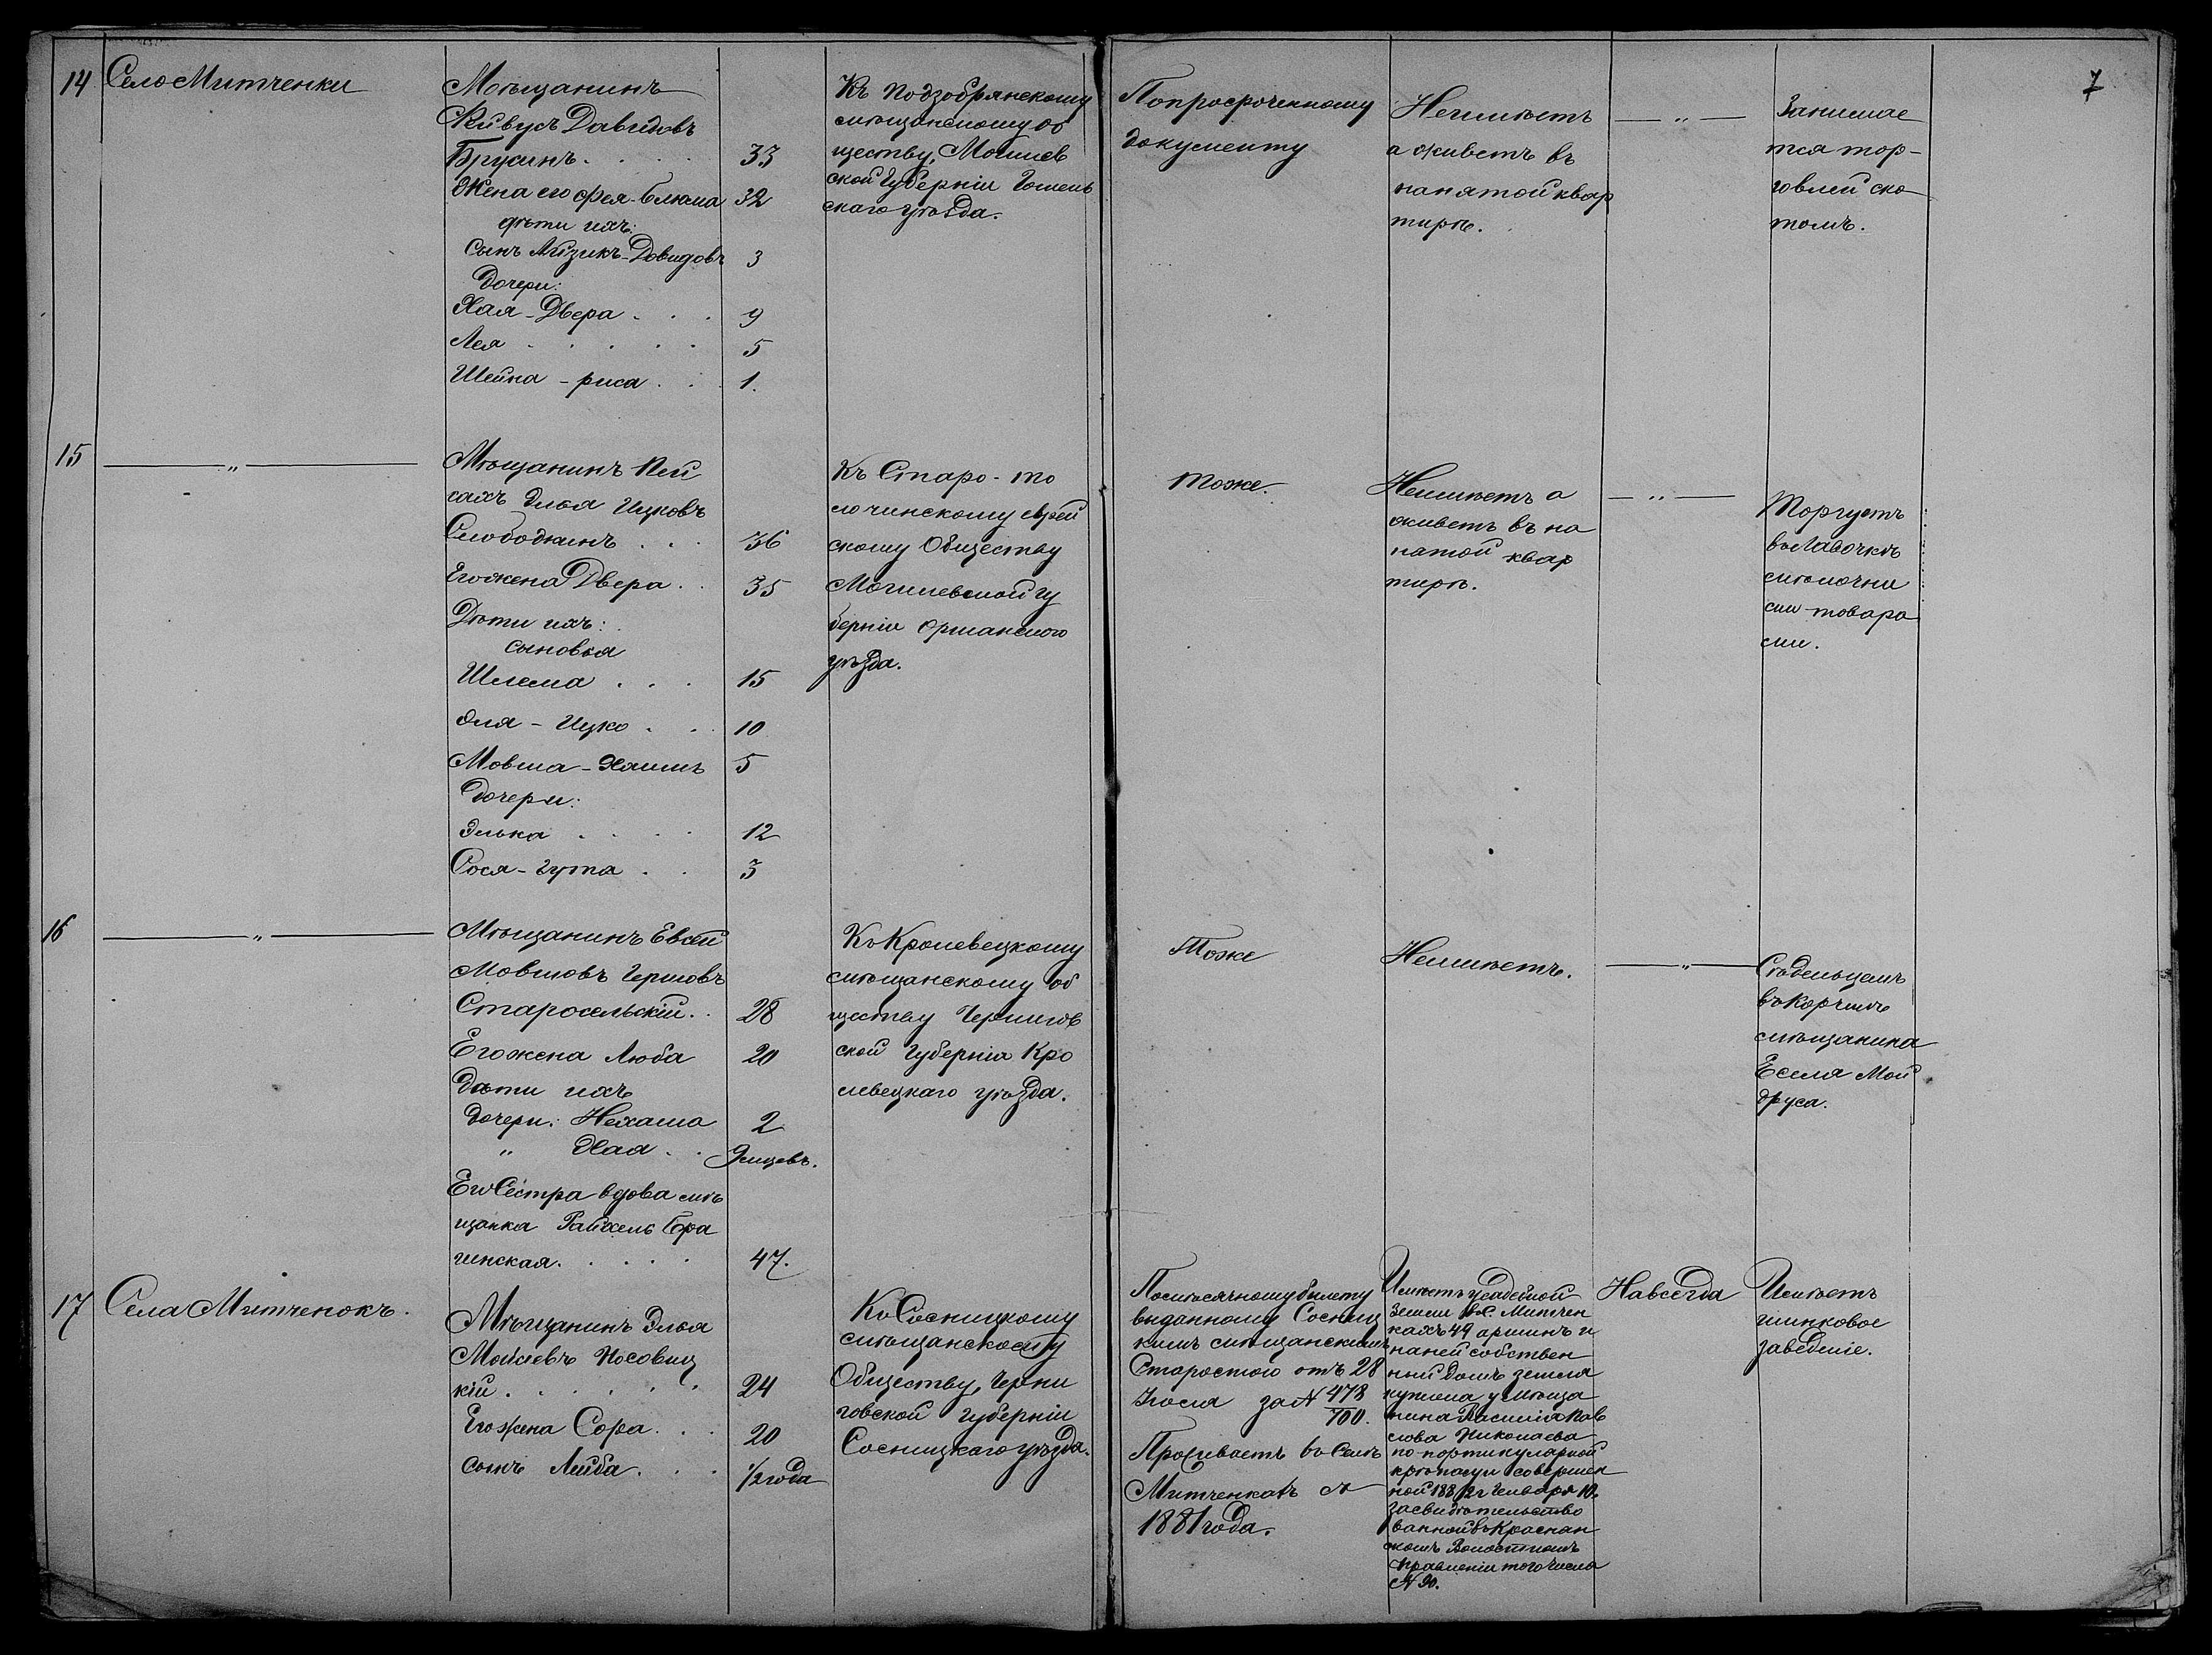 7
14
Село Митченки
Мѣщанинъ
Давидовъ
Брусинъ. . . . 33
Жена его Фея-блюма 32
дѣти ихъ:
Сынъ Айзикъ-Довидовъ 3
Дочери:
Хая-Двера . . . 9
Лея . . . . . 5
Шейна-риса . . . 1.
Къ
мѣщанскому об
ществу, Могилев
ской Губерніи Гомель
скаго уѣзда.
Попросроченному
документу
Неимѣетъ
а живетъ въ
нанятой квар
тирѣ.
— „ —
Занимае
тся тор-
говлей ско
томъ.
15
— „ —
Мѣщанинъ Пей
сахъ Элья Ицковъ
Слободкинъ . . . 36
Его жена Двера . . 35
Дѣти ихъ:
сыновья
Шлема . . . 15
Эля-Ицко . . 10
Мовша-Хаимъ 5
Дочери:
Элька . . . . 12
Сося-гута . . 3
Къ Старо-то
лочинскому еврей
скому Обществу
Могилевской гу
берніи Оршанского
уѣзда.
Тоже.
Неимѣетъ а
живетъ въ на
натой квар
тирѣ.
— „ —
Торгуетъ
въ Лавочкѣ
съмѣлочны
ми товара
ми.
16
— „ —
Мѣщанинъ Евсей
Мовшовъ Гершовъ
Старосельскій. . 28
Его жена Люба 20
Дѣти ихъ
дочери: Нехама 2
„ Хая . . 9 мѣцевъ.
Его Сестра вдова мѣ
щанка Райхель Бра
гинская. . . . . 47.
Къ Кролевецкому
мѣщанскому об
ществу Чернигов
ской Губерніи Кро
левецкаго уѣзда.
Тоже
Неимѣетъ.
— „ —
Сѣдельцемъ
въ Корчмѣ
мѣщанина
Еселя Мой
друса.
17
Села Митченокъ.
Мѣщанинъ Элья
Мойсевъ Носовиц
кій. . . . . . 24
Его жена Сора. . . 20
сынъ Лейба. . . 1/2 года
Къ Сосницкому
мѣщанскому
Обществу, Черни
говской Губерніи
Сосницкаго уѣзда.
Помѣсячному билету
выданному Сосниц
кимъ мѣщанскимъ
Старостою отъ 28
Іюля за N 478/700.
Проживаетъ въ Селѣ
Митченкахъ съ
1881 года.
Имѣетъ усадебной
земли въ С. Митчен
кахъ 49 аршинъ и
наней собствен
ный домъ земля
куплена у мѣща
нина Василія Пав
лова Николаева
по портикулярной
крѣпости совершен
ной 1881/2 г Января 10.
засвидѣтельство
ванной въ Краснян
скомъ Волостномъ
правленіи того числа
N 90.
Навсегда
Имѣетъ
шинковое
заведеніе.